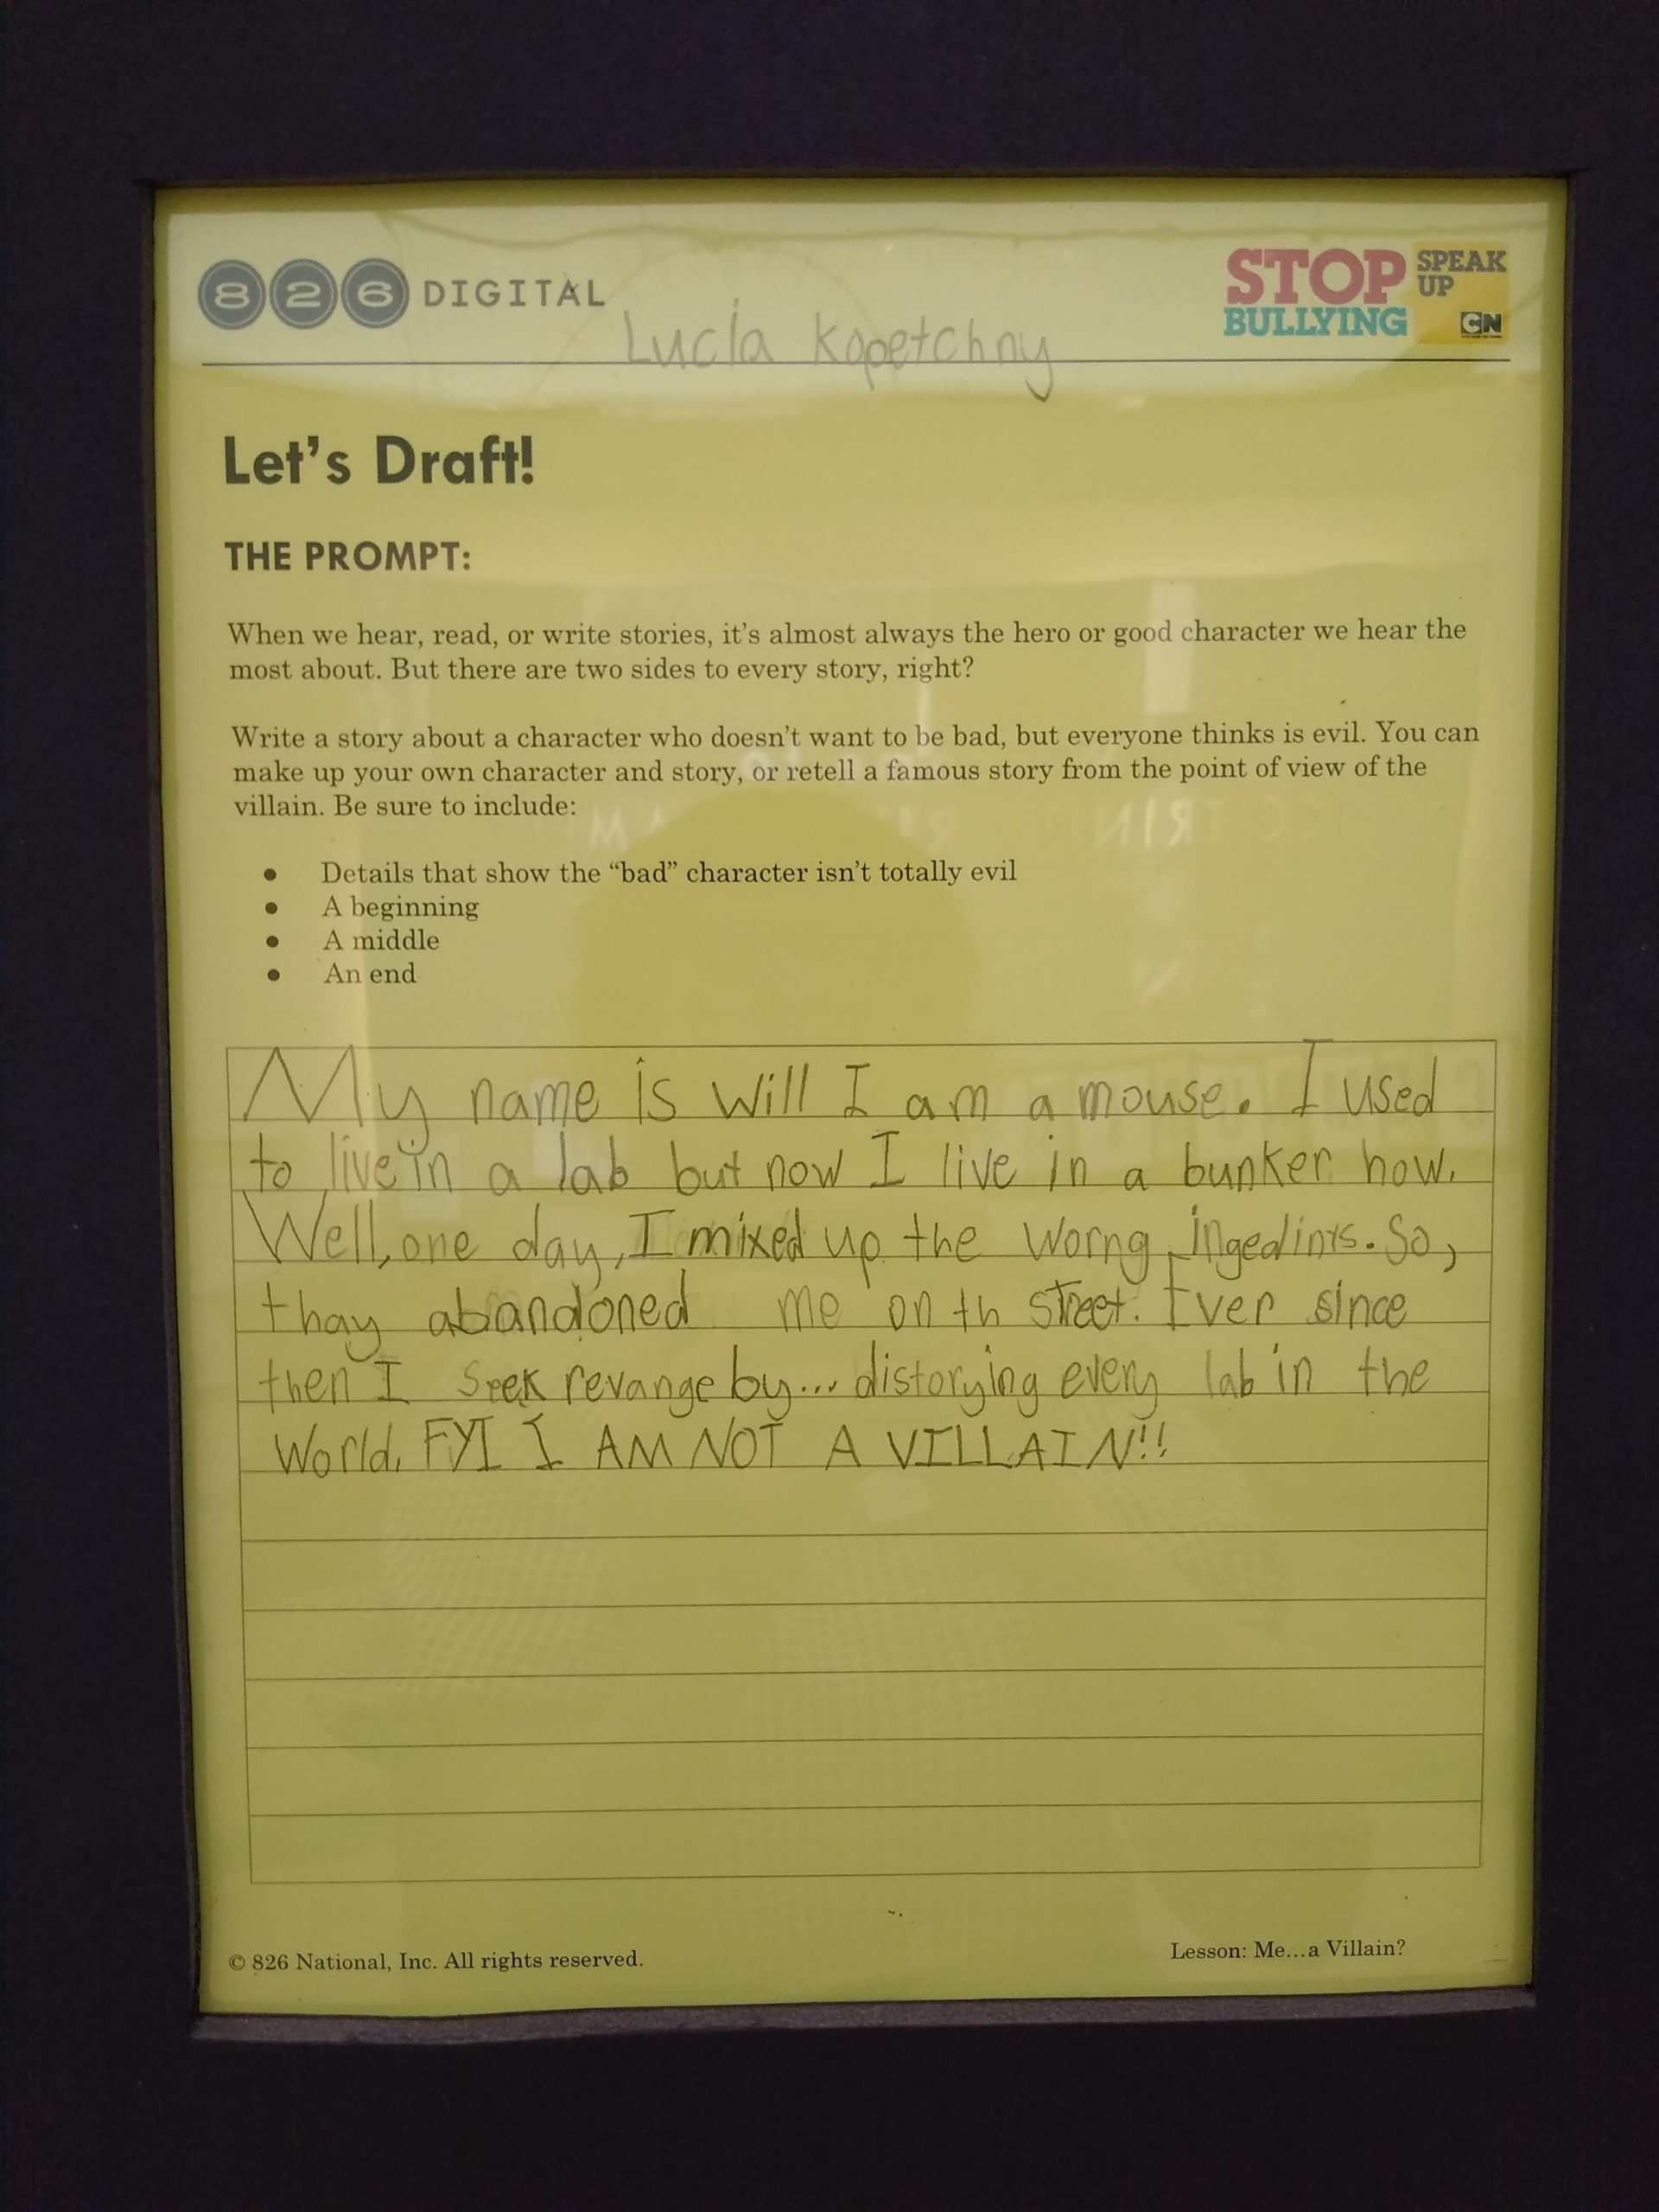 826 DIGITAL
STOP SPEAK UP
BULLYING CN
Lucía Kopetchny
Let's Draft!
THE PROMPT:
When we hear, read, or write stories, it's almost always the hero or good character we hear the
most about. But there are two sides to every story, right?
Write a story about a character who doesn't want to be bad, but everyone thinks is evil. You can
make up your own character and story, or retell a famous story from the point of view of the
villain. Be sure to include:
● Details that show the “bad” character isn't totally evil
● A beginning
● A middle
● An end
My name is Will I am a mouse. I used
to live in a lab but now I live in a bunker how.
Well, one day, I mixed up the worng ingedints. So,
thay abandoned me on th street. Ever since
then I seek revange by... distorying every lab in the
World. FYI I AM NOT A VILLAIN!!
© 826 National, Inc. All rights reserved.
Lesson: Me...a Villain?